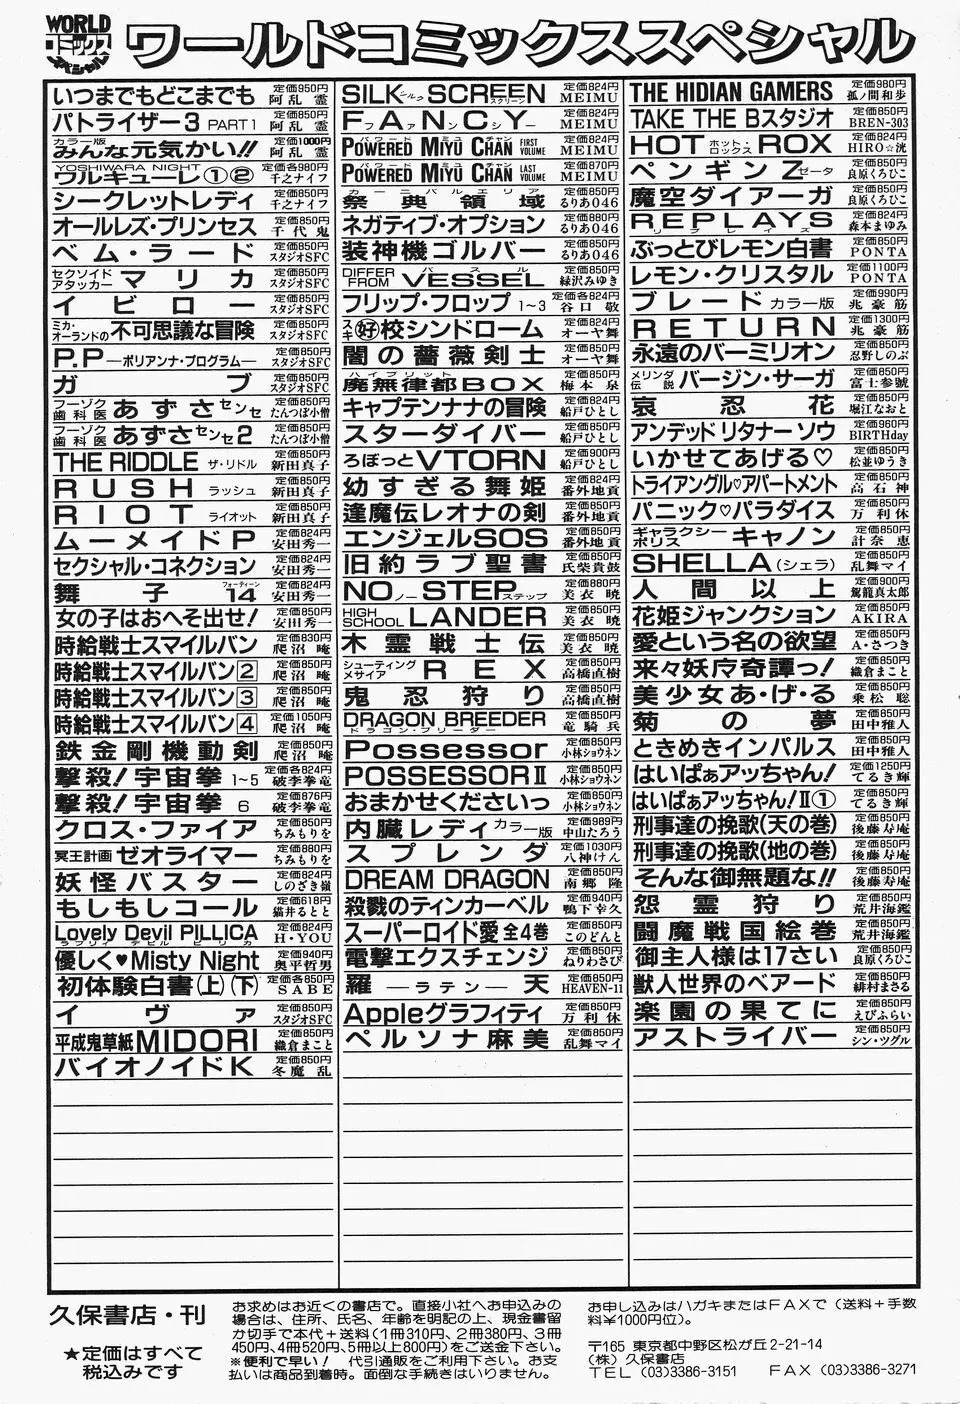 WORLD
コミックス
スペシャル
ワールドコミックススペシャル
いつまでもどこまでも 定価950円 阿乱霊
パトライザー3 PART1 定価850円 阿乱霊
カラー版 みんな元気かい!! 定価1000円 阿乱霊
YOSHIWARA NIGHT ワルキューレ①② 定価各980円 千之ナイフ
シークレットレディ 定価850円 千之ナイフ
オールレズ・プリンセス 定価850円 千代鬼
ベム・ラード 定価850円 スタジオSFC
セクソイドアタッカー マリカ 定価850円 スタジオSFC
イビロー 定価850円 スタジオSFC
ミカ・オーランドの不可思議な冒険 定価850円 スタジオSFC
P.P―ポリアンナ・プログラム― 定価850円 スタジオSFC
ガブ 定価850円 スタジオSFC
フーゾク歯科医 あずさセンセ 定価850円 たんつぼ小僧
フーゾク歯科医 あずさセンセ2 定価850円 たんつぼ小僧
THE RIDDLE ザ・リドル 定価850円 新田真子
RUSH ラッシュ 定価850円 新田真子
RIOT ライオット 定価850円 新田真子
ムーメイドP 定価824円 安田秀一
セクシャル・コネクション 定価824円 安田秀一
舞子14 フォーティーン 定価824円 安田秀一
女の子はおへそ出せ! 定価850円 安田秀一
時給戦士スマイルバン 定価830円 爬沼 晻
時給戦士スマイルバン2 定価850円 爬沼
時給戦士スマイルバン3 定価850円 爬沼
時給戦士スマイルバン4 定価1050円 爬沼
鉄金剛機動剣 定価850円 爬沼
撃殺!宇宙拳 1~5 定価各824円 破李拳竜
撃殺!宇宙拳 6 定価876円 破李拳竜
クロス・ファイア 定価850円 ちみもりを
冥王計画ゼオライマー 定価880円 ちみもりを
妖怪バスター 定価824円 しのざき嶺
もしもしコール 定価618円 猫井るとと
Lovely Devil PILLICA ラブリイ デビル ピリカ 定価824円 H・YOU
優しく♥Misty Night 定価940円 奥平哲男
初体験白書(上)(下) 定価各850円 SABE
イヴァ 定価850円 スタジオSFC
平成鬼草紙MIDORI 定価850円 織倉まこと
バイオノイドK 定価850円 冬魔乱
SILK シルク SCREEN スクリーン 定価824円 MEIMU
FANCY ファンシー 定価824円 MEIMU
POWERED MIYU CHAN パワード ミュ チャン FIRST VOLUME 定価824円 MEIMU
POWERED MIYU CHAN パワード ミュ チャン LAST VOLUME 定価870円 MEIMU
祭典領域 カーニバルエリア 定価850円 るりあ046
ネガティブ・オプション 定価880円 るりあ046
装神機ゴルバー 定価850円 るりあ046
DIFFER FROM VESSEL バスル 定価850円 緑沢みゆき
フリップ・フロップ 1~3 定価各824円 谷口敬
好校シンドローム スキ 定価824円 オーヤ舞
闇の薔薇剣士 定価850円 オーヤ舞
廃無律都BOX ハイブリット 定価850円 梅本泉
キャプテンナナの冒険 定価824円 船戸ひとし
スターダイバー 定価850円 船戸ひとし
ろぼっとVTORN 定価900円 船戸ひとし
幼すぎる舞姫 定価850円 番外地貢
逢魔伝レオナの剣 定価850円 番外地貢
エンジェルSOS 定価850円 番外地貢
旧約ラブ聖書 定価850円 氏柴貴鼓
NO ノー STEP ステップ 定価880円 美衣暁
HIGH SCHOOL LANDER 定価850円 美衣暁
木霊戦士伝 定価850円 美衣暁
シューティングメサイア REX 定価850円 高橋直樹
鬼忍狩り 定価850円 高橋直樹
DRAGON BREEDER ドラゴン・ブリーダー 定価850円 竜騎兵
Possessor 定価850円 小林ショウネン
POSSESSOR II 定価850円 小林ショウネン
おまかせくださいっ 定価850円 小林ショウネン
内臓レディ カラー版 定価989円 中山たろう
スプレンダ 定価1030円 八神けん
DREAM DRAGON 定価850円 南郷隆
殺戮のティンカーベル 定価940円 鴨下幸久
スーパーロイド愛 全4巻 定価各850円 このどんと
電撃エクスチェンジ 定価850円 ねりわさび
羅―ラテン―天 定価850円 HEAVEN-11
Appleグラフィティ 定価850円 万利休
ペルソナ麻美 定価850円 乱舞マイ
THE HIDIAN GAMERS 定価980円 狐ノ間和歩
TAKE THE Bスタジオ 定価850円 BREN-303
HOT ホットロックス ROX 定価824円 HIRO☆洸
ペンギンZ ゼータ 定価850円 良原くろひこ
魔空ダイアーガ 定価850円 良原くろひこ
REPLAYS リプレイズ 定価824円 森本まゆみ
ぶっとびレモン白書 定価850円 PONTA
レモン・クリスタル 定価1100円 PONTA
ブレード カラー版 定価990円 兆豪筋
RETURN 定価1300円 兆豪筋
永遠のバーミリオン 定価850円 忍野しのぶ
メリンダ伝説 バージン・サーガ 定価850円 富士参號
哀忍花 定価850円 堀江なおと
アンデッドリタナーソウ 定価960円 BIRTHday
いかせてあげる♡ 定価850円 松並ゆうき
トライアングル♡アパートメント 定価850円 高石神
パニック♡パラダイス 定価850円 万利休
ギャラクシーポリス キャノン 定価850円 計奈恵
SHELLA(シェラ) 定価850円 乱舞マイ
人間以上 定価900円 駕籠真太郎
花姫ジャンクション 定価850円 AKIRA
愛という名の欲望 定価850円 A・さつき
来々妖序奇譚っ! 定価850円 織倉まこと
美少女あ・げ・る 定価850円 乗松聡
菊の夢 定価850円 田中雅人
ときめきインパルス 定価850円 田中雅人
はいぱぁアッちゃん! 定価1250円 てるき輝
はいぱぁアッちゃん!II① 定価850円 てるき輝
刑事達の挽歌(天の巻) 定価850円 後藤寿庵
刑事達の挽歌(地の巻) 定価850円 後藤寿庵
そんな御無題な!! 定価850円 後藤寿庵
怨霊狩り 定価850円 荒井海鑑
闘魔戦国絵巻 定価850円 荒井海鑑
御主人様は17さい 定価850円 良原くろひこ
獣人世界のベアード 定価850円 緋村まさる
楽園の果てに 定価850円 えびふらい
アストライバー 定価850円 シン・ツグル
久保書店・刊
★定価はすべて
税込みです
お求めはお近くの書店で。直接小社へお申込みの
場合は、住所、氏名、年齢を明記の上、現金書留
か切手で本代＋送料(1冊310円、2冊380円、3冊
450円、4冊520円、5冊以上800円)をご送金下さい。
※便利で早い! 代引通販をご利用下さい。お支
払いは商品到着時。面倒な手続きはいりません。
お申し込みはハガキまたはFAXで(送料＋手数
料¥1000円位)。
〒165 東京都中野区松が丘2-21-14
(株)久保書店
TEL (03)3386-3151 FAX (03)3386-3271